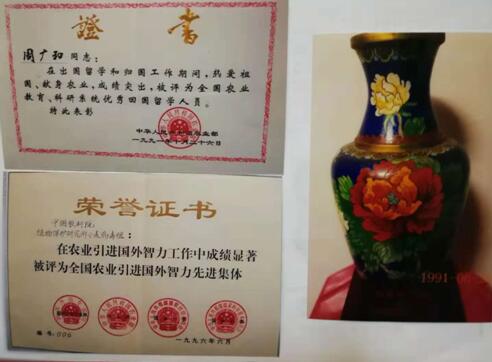 證書
周广和 同志：
在出国留学和归国工作期间，热爱祖
国、献身农业，成绩突出，被评为全国农业
教育、科研系统优秀回国留学人员。
特此表彰
中华人民共和国农业部
一九九一年十月二十六日
荣誉证书
中国农科院
植物保护研究所小麦病毒组：
在农业引进国外智力工作中成绩显著
被评为全国农业引进国外智力先进集体
编号：006
一九九六年六月
1991-06